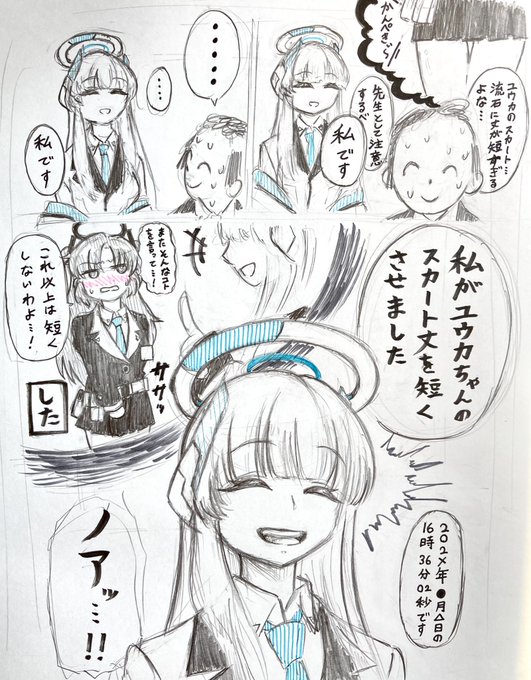 かんぺき〜
ユウカのスカート…
流石に丈が短すぎる
よな…
先生として注意
するべ
私です
・・・・・
・・・・
私です
私がユウカちゃんの
スカート丈を短く
させました
またそんなコト
を言って…!
これ以上は短く
しないわよ…!
ササッ
した
202X年●月△日の
16時
36分
02秒です
ノアッ…!!